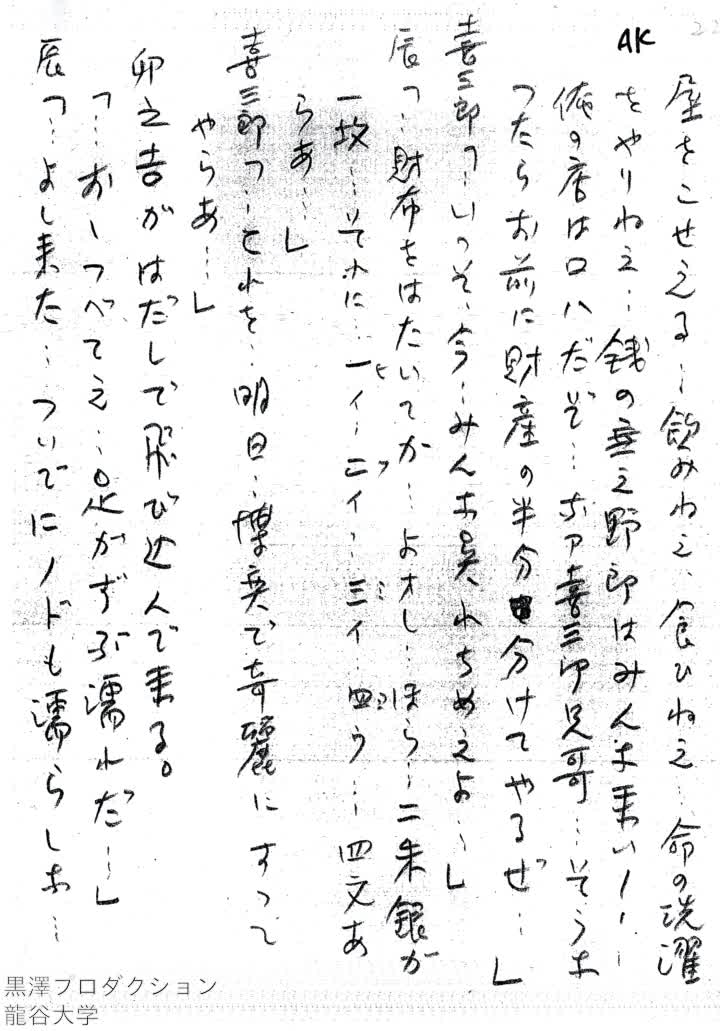 AK
22
屋をこせえる…飲みねえ、食ひねえ…命の洗濯
をやりねえ…銭の無え野郎はみんな来い!…
俺の店はロハだぞ…なア喜三郎兄哥…そうな
つたらお前に財産の半分分けてやるぜ…」
喜三郎「…いつそ、今…みんな呉れちめえよ…」
辰「…財布をはたいてか…よオし…ほら…二朱銀が
一枚…それに…一イ…二イ…三イ…四ウ…四文あ
らあ…」
喜三郎「…それを…明日…博奕で奇麗にすつて
やらあ…」
卯之吉がはだしで飛び込んで来る。
「…おゝつべてえ…足がずぶ濡れだ…」
辰「…よし来た…ついでにノドも濡らしな…
黒澤プロダクション
龍谷大学